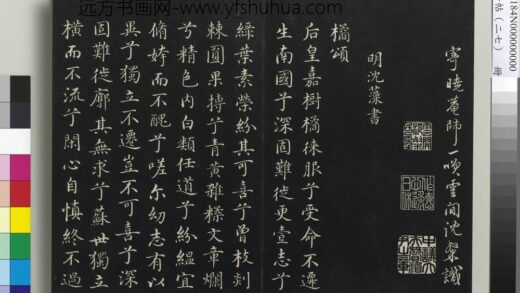 远方书画网-www.yfshuhua
184N000000000
帖(二七)
寧曉菴師一雲間沈粲識
明沈藻書
橘頌
后皇嘉樹橘徠服兮受命不遷
生南國兮深固難徙更壹志兮
綠葉素榮紛其可喜兮曾枝剡
棘圓果摶兮青黃雜糅文章爛
兮精色內白類任道兮紛緼宜
脩姱而不醜兮嗟尔幼志有以
異兮獨立不遷豈不可喜兮深
固難徙廓其無求兮蘇世獨立
橫而不流兮閑心自慎終不過